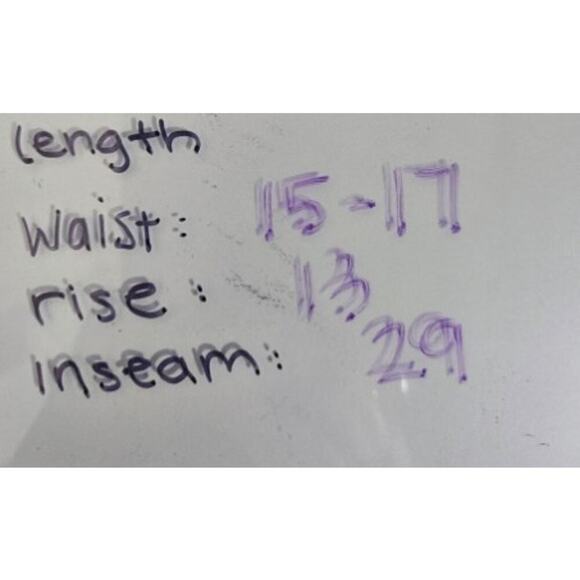 length
waist: 15-17
rise: 13
inseam: 29